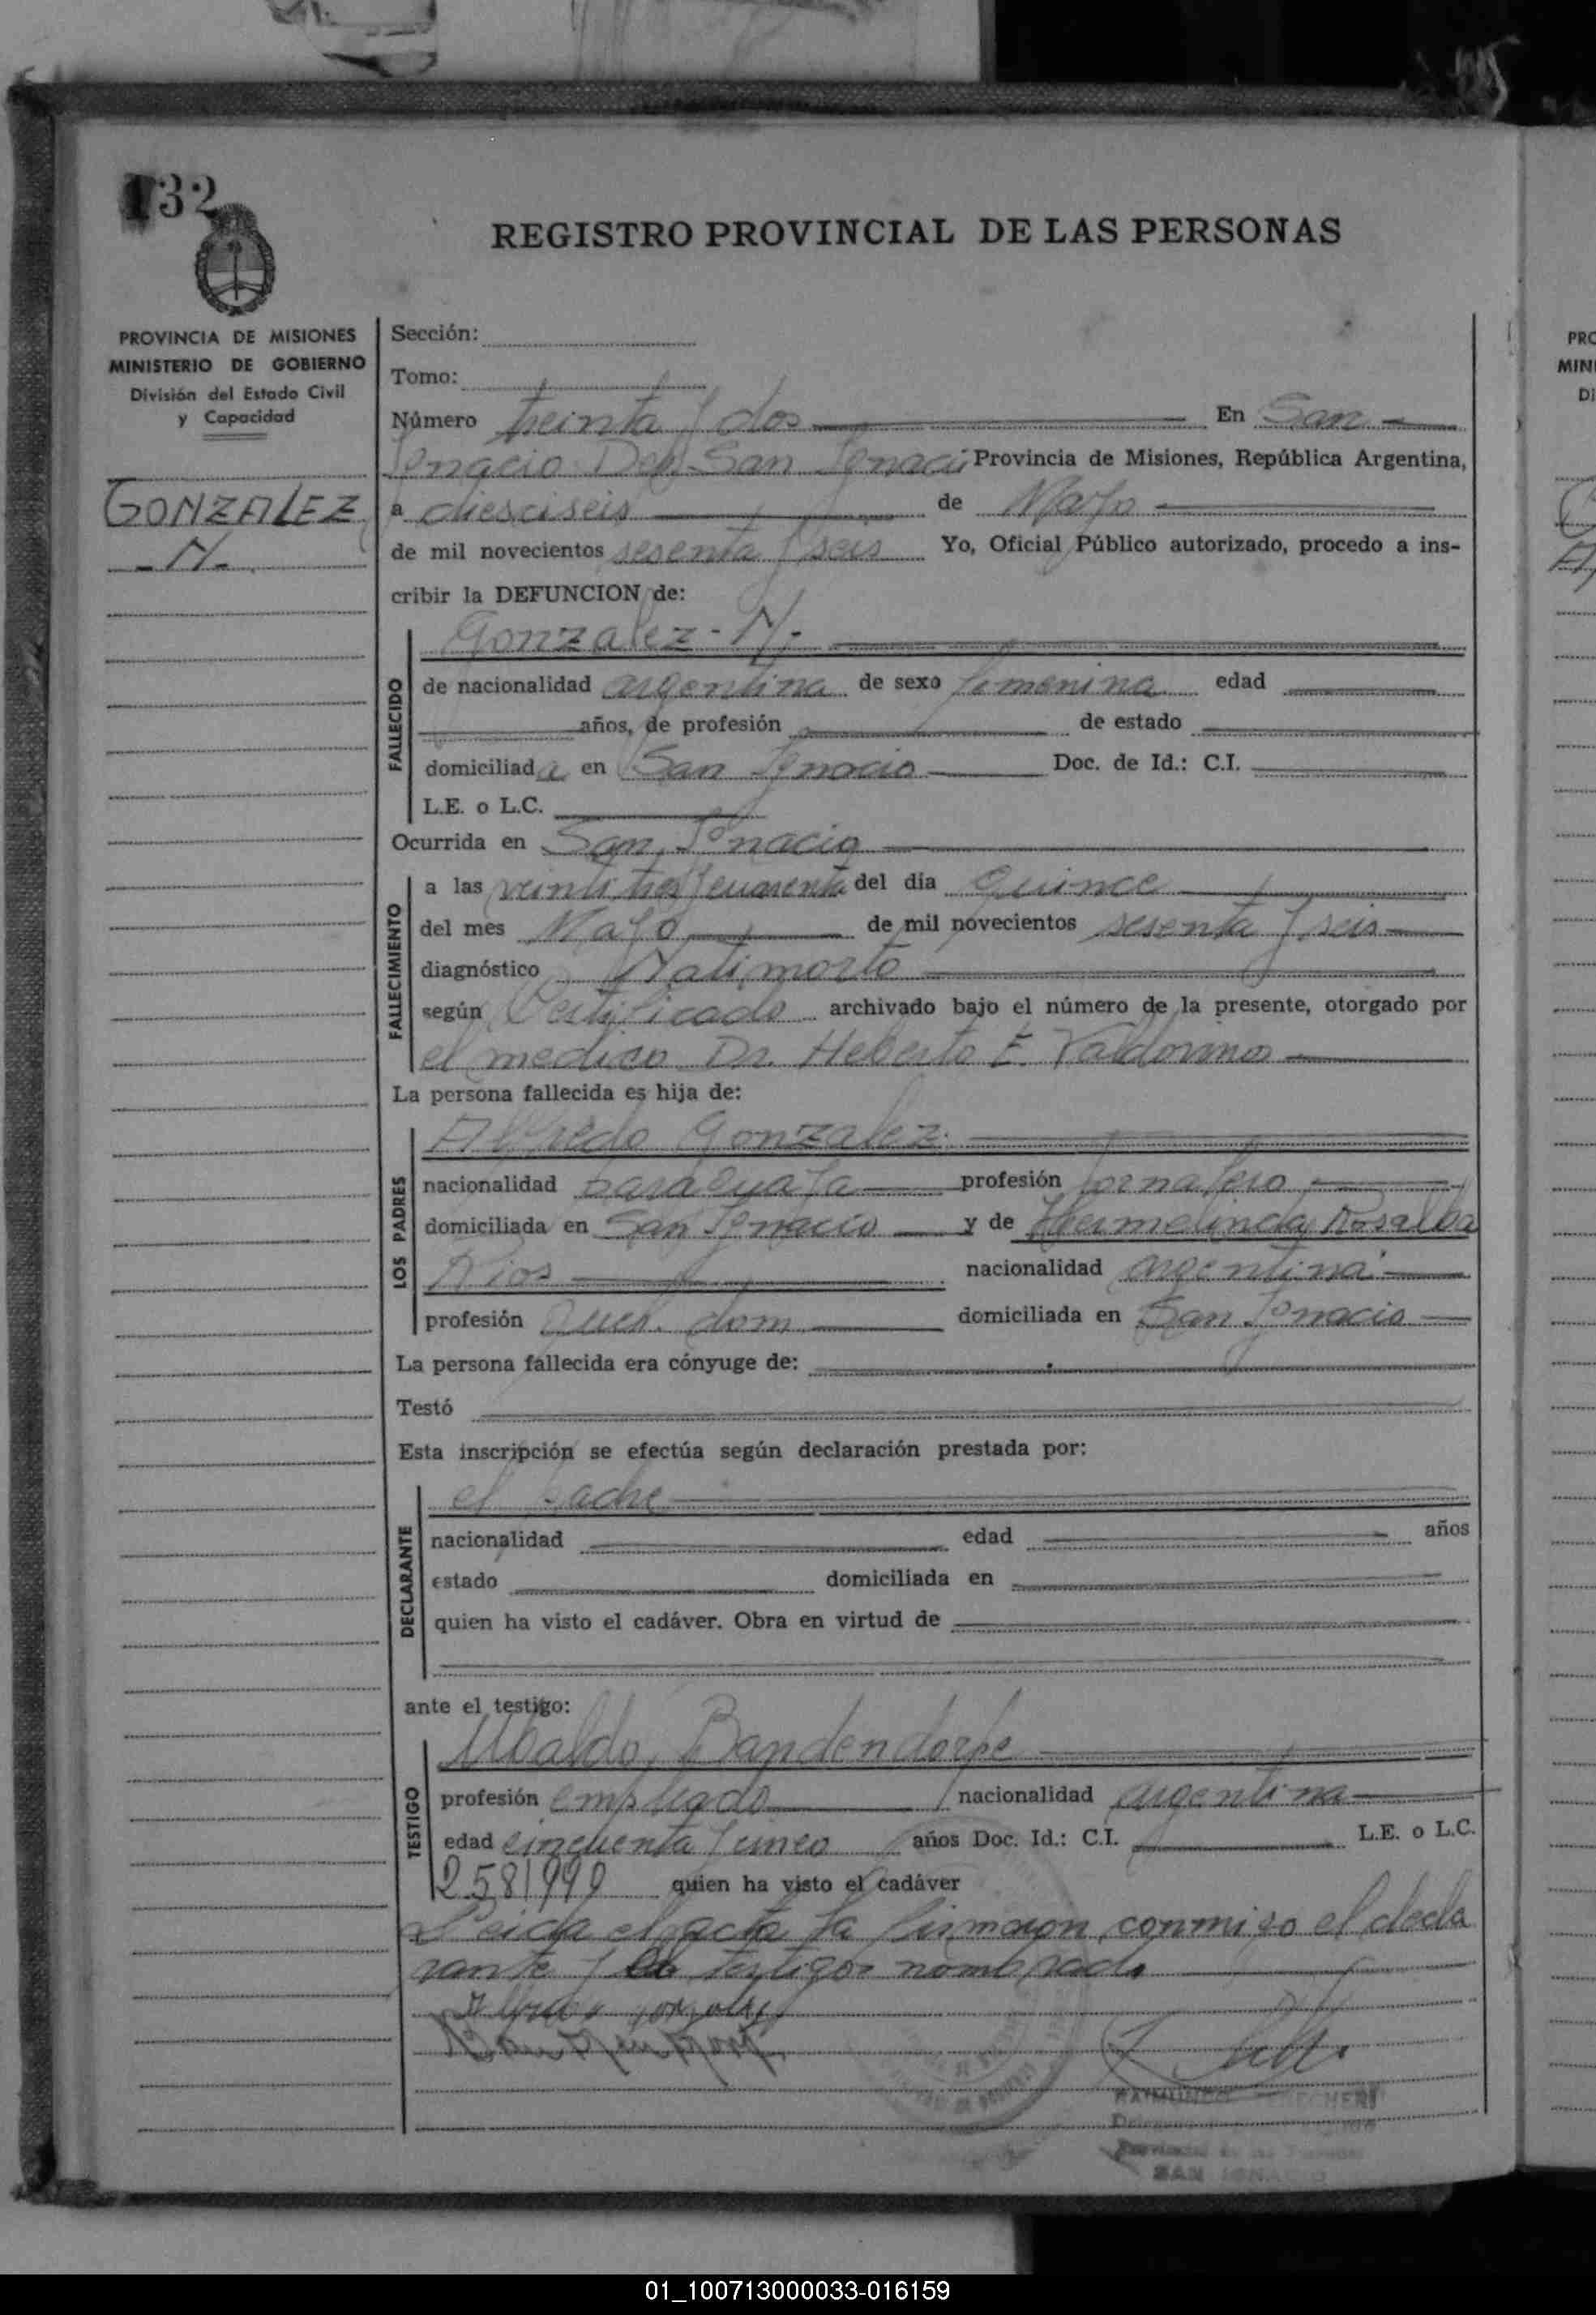 32
REGISTRO PROVINCIAL DE LAS PERSONAS
PROVINCIA DE MISIONES
MINISTERIO DE GOBIERNO
División del Estado Civil
y Capacidad
GONZALEZ
-N-
Sección:
Tomo:
Número treinta y dos En San
Ignacio Dep San Ignacio Provincia de Misiones, República Argentina,
a diesciseis de Mayo
de mil novecientos sesenta y seis Yo, Oficial Público autorizado, procedo a ins-
cribir la DEFUNCION de:
FALLECIDO
Gonzalez - N-
de nacionalidad argentina de sexo femenina edad
años, de profesión de estado
domiciliada en San Ignacio Doc. de Id.: C.I.
L.E. o L.C.
Ocurrida en San Ignacio
FALLECIMIENTO
a las veintitres y cuarenta del día quince
del mes Mayo de mil novecientos sesenta y seis
diagnóstico Natimorto
según Certificado archivado bajo el número de la presente, otorgado por
el medico Dr. Heberto E. Valdovino
La persona fallecida es hija de:
LOS PADRES
Alfredo Gonzalez
nacionalidad paraguaya profesión jornalero
domiciliada en San Ignacio y de Hermelinda Rosalba
Rios nacionalidad argentina
profesión Queh. dom domiciliada en San Ignacio
La persona fallecida era cónyuge de:
Testó
Esta inscripción se efectúa según declaración prestada por:
DECLARANTE
el padre
nacionalidad edad años
estado domiciliada en
quien ha visto el cadáver. Obra en virtud de
ante el testigo:
TESTIGO
Ubaldo Bandendorpe
profesión empleado nacionalidad argentina
edad cincuenta y cinco años Doc. Id.: C.I. L.E. o L.C.
2581999 quien ha visto el cadáver
Leida el acta la firmaron conmigo el decla
rante y el testigo nombrado
SAN IGNACIO
PRO
MINI
Di
01_100713000033-016159